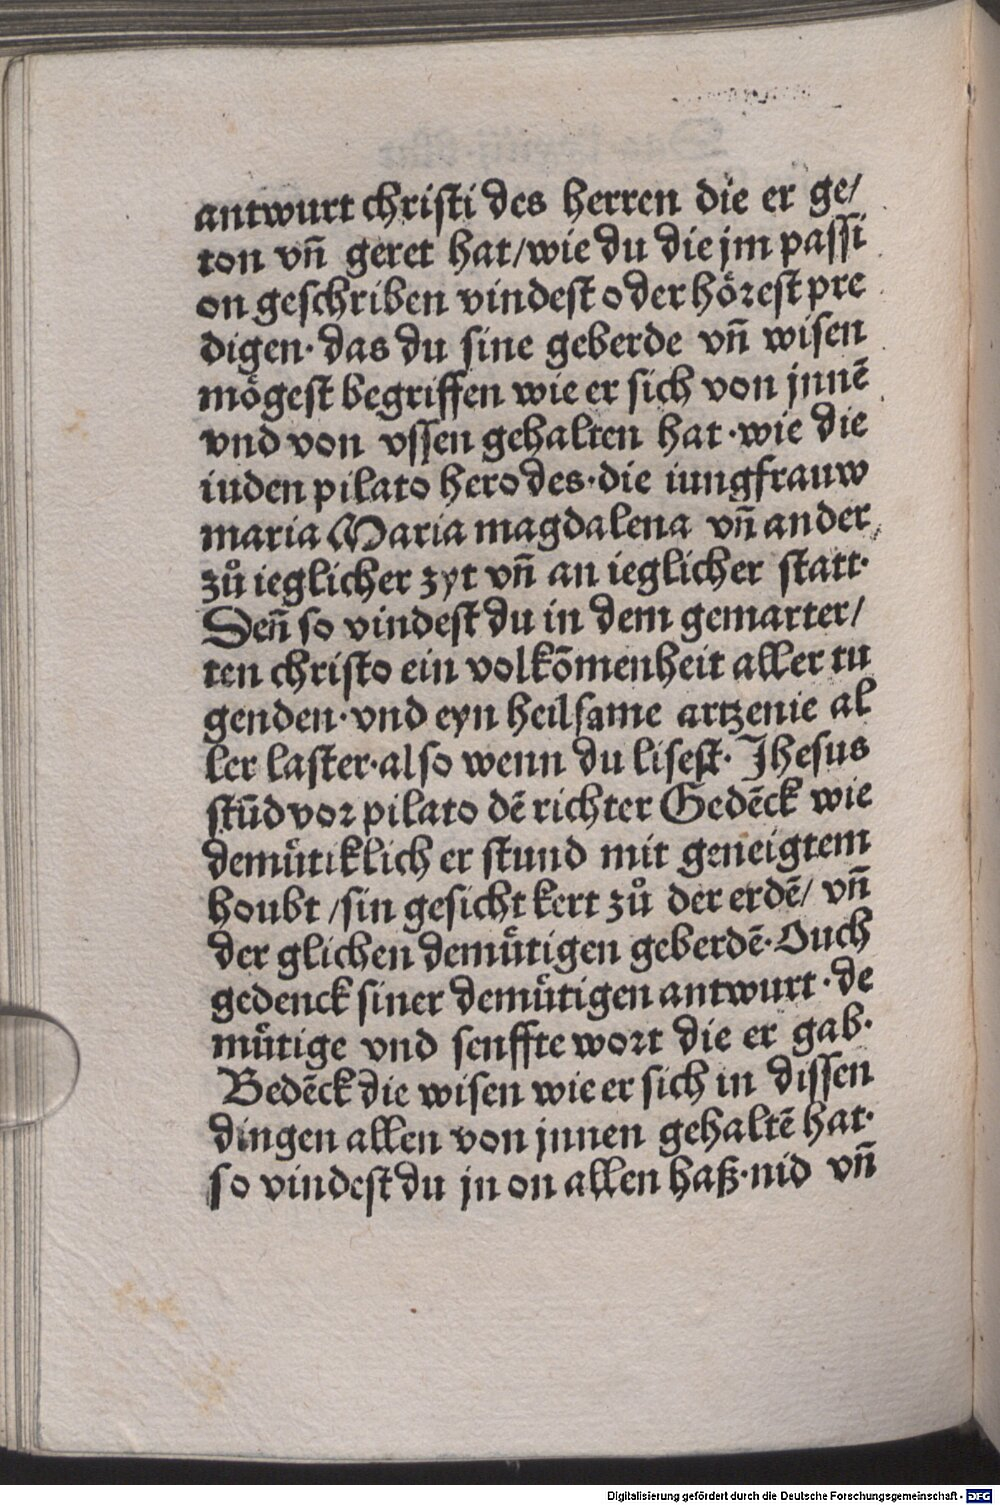 antwurt christi des herren die er ge/
ton vn̄ geret hat/wie du die jm passi
on geschriben vindest oder hoͤrest pre
digen· das du sine geberde vn̄ wisen
moͤgest begriffen wie er sich von jnnē
vnd von vssen gehalten hat·wie die
iuden pilato herodes·die iungfrauw
maria Maria magdalena vn̄ ander
zuͦ ieglicher zyt vn̄ an ieglicher statt·
Den̄ so vindest du in dem gemarter/
ten christo ein volkōmenheit aller tu
genden·vnd eyn heilsame artzenie al
ler laster·also wenn du lisest· Jhesus
stūd vor pilato dē richter Gedēck wie
demuͤtiklich er stund mit geneigtem
houbt /sin gesicht kert zuͦ der erdē/ vn̄
der glichen demuͤtigen geberdē·Ouch
gedenck siner demuͤtigen antwurt·de
muͤtige vnd senffte wort die er gab·
Bedēck die wisen wie er sich in dissen
dingen allen von jnnen gehaltē hat·
so vindest du jn on allen haß·nid vn̄
Digitalisierung gefördert durch die Deutsche Forschungsgemeinschaft - DFG